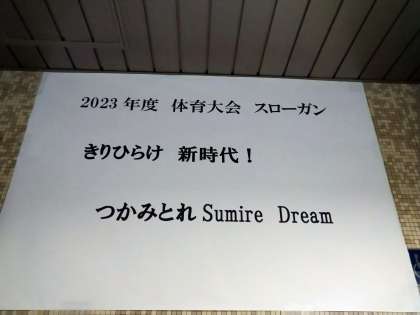 2023年度 体育大会 スローガン
きりひらけ 新時代！
つかみとれ Sumire Dream